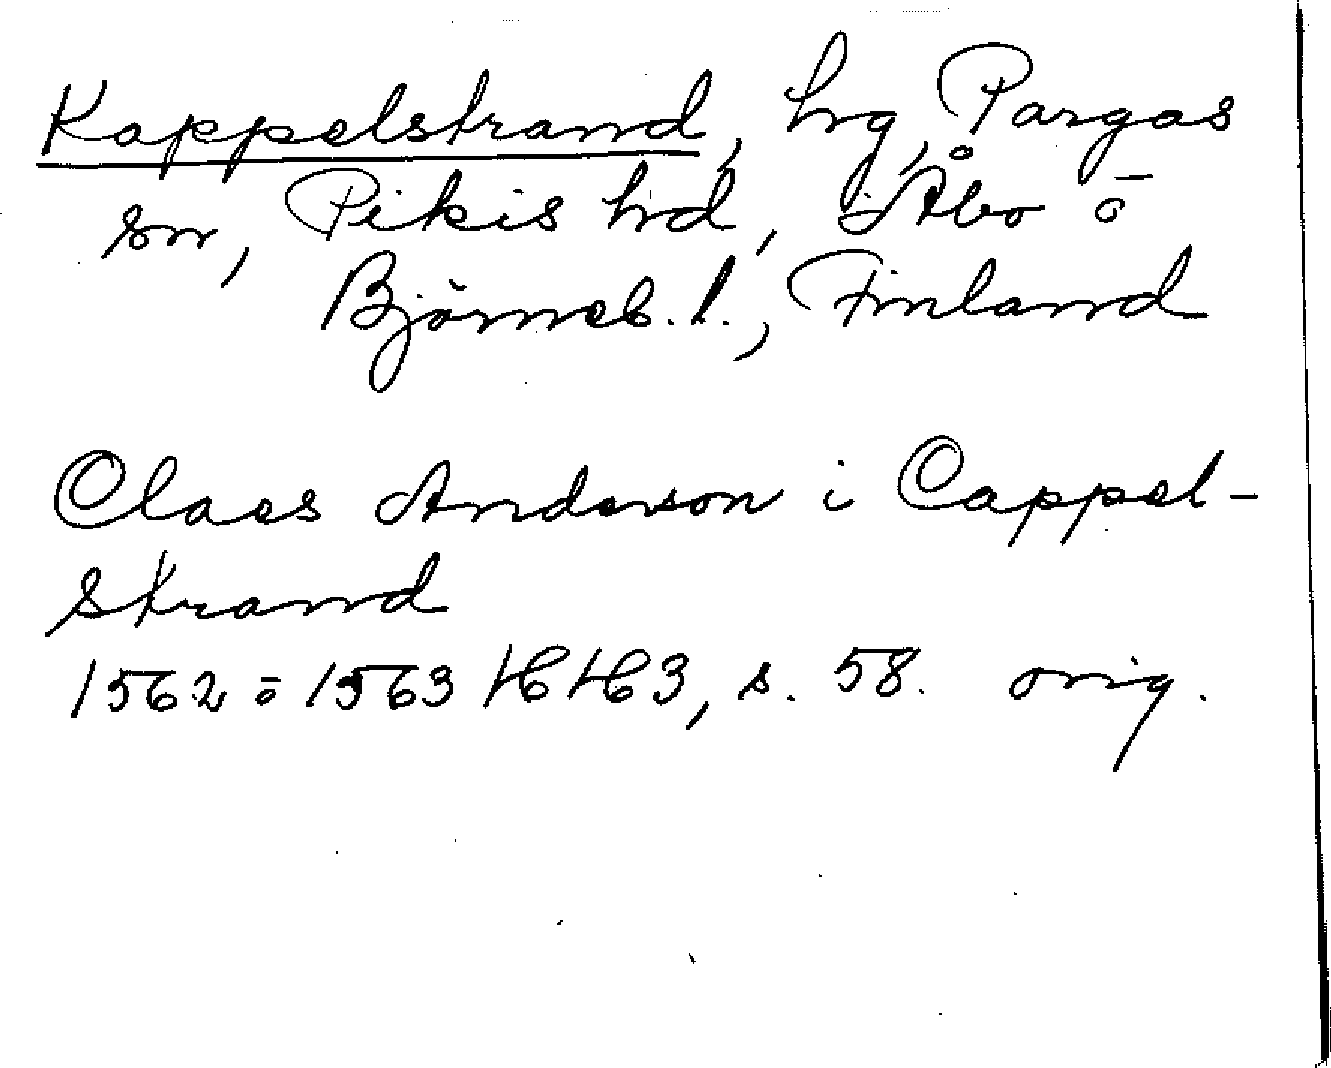 Kappelstrand, hg, Pargas
sn, Pikis hd, i Åbo o
Björneb. l., Finland
Claes Anderson i Cappel-
strand
1562 o 1563 HH3, s. 58. orig.